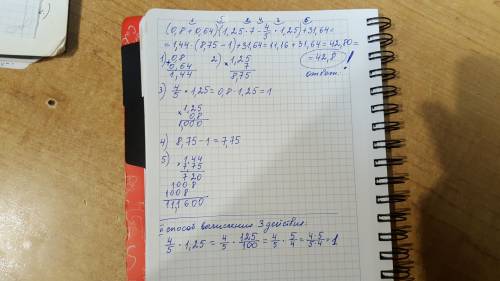 1 5 2 4 3 6
(0,8+0,64)(1,25·7-4/5·1,25)+31,64=
=1,44·(8,75-1)+31,64=11,16+31,64=42,80=
=42,8 !
ответ.
1) +0,8
0,64
1,44
2) ×1,25
7
8,75
3) 4/5·1,25=0,8·1,25=1
×1,25
0,8
1,000
4) 8,75-1=7,75
5) ×1,44
7,75
720
1008
1008
11,1600
способ вычисления 3 действия:
4/5·1,25=4/5·125/100=4/5·5/4=4·5/5·4=1